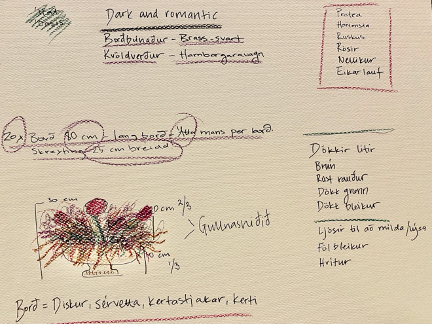 Dark and romantic
Borðbúnaður - Brass-svart
Kvöldverður - Hamborgaravagn
Protea
Hortensia
Ruskus
Rósir
Nellikur
Eikarlauf
20x Borð 80 cm - langborð - mans per borð.
Skreyting 25 cm breidd
Dökkir litir
Brún
Rost rauður
Dökk grænn
Dökk bleikur
Ljósir til að milda/lýsa
Fölbleikur
Hvítur
30 cm
20 cm 2/3
Gullinsniðið
10 cm
1/3
Borð = Diskur, sérvetta, kertastjakar, kerti